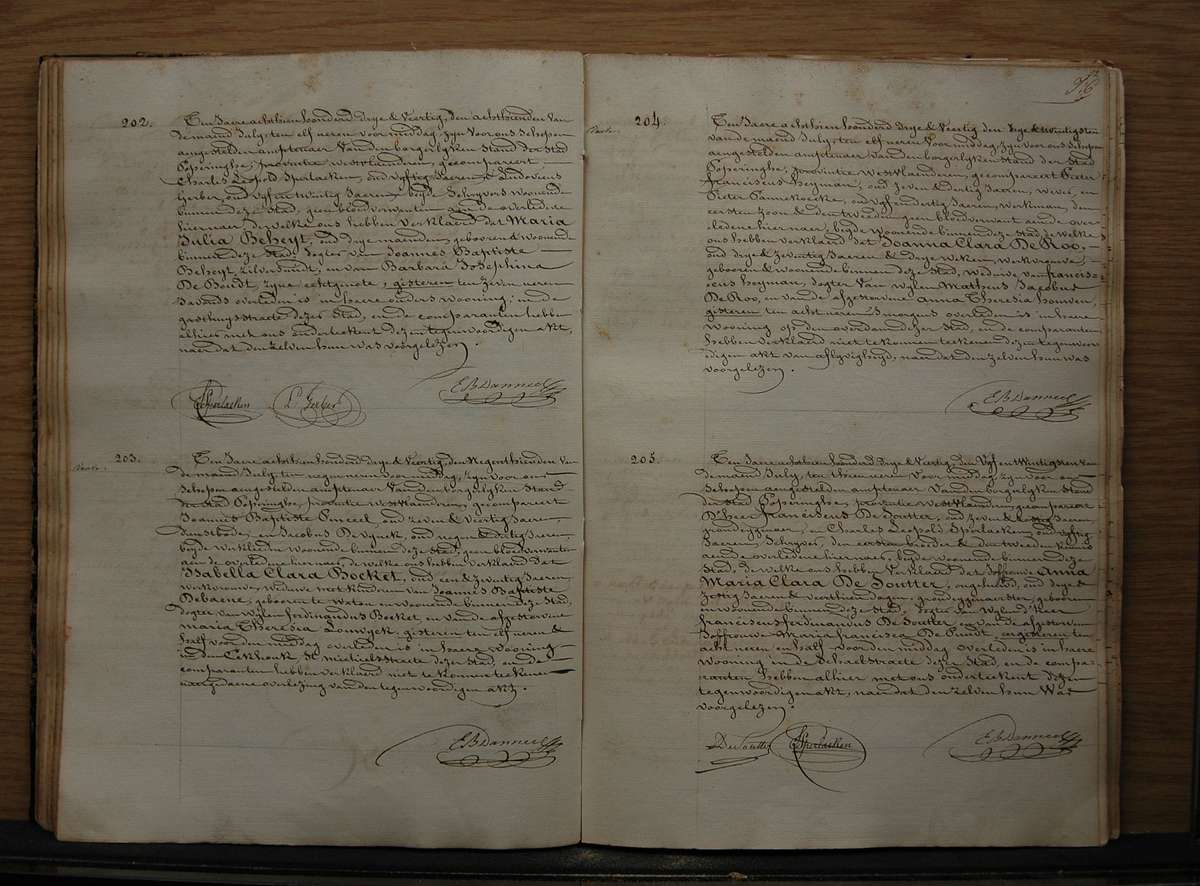 202.
Ten Jaere achthien honderd drye & Veertig, den achtthienden van
de maand July, ten elf uren voor middag, zyn voor ons schepen
aengestelden amptenaer van den borgerlyken stand der stad
Poperinghe, provintie westvlaendren, gecompareert
Charles Leopold Sperlaeken, oud vyftig Jaeren, & Ludovicus
Gerber, oud vyf en twintig Jaeren, beyde Schryvers woonende
binnen deze Stad, geen bloedverwanten aen de overledene
hiernaer, de welke ons hebben verklaerd dat Maria
Julia Beheyt, oud drye maenden, geboren & woonende
binnen deze Stad, dogter van Joannes Baptiste
Beheyt, zilversmidt, en van Barbara Josephina
De Boudt, zyne echtgenote, gisteren ten zeven uren
savonds overleden is in haere ouders wooning, in de
gasthuysstraete dezer stad, en de comparanten hebben
alhier met ons onderteekent dezen tegenwoordigen akt,
naer dat den zelven hun was voorgelezen.
Sperlaeken L. Gerber E B Danneel
203.
Ten Jaere achthien honderd drye & Veertig, den Negenthienden van
de maand July, ten negen uren voor middag, zyn voor ons
schepen aengestelden amptenaer van den borgerlyken stand
der stad Poperinghe, provintie westvlaendren, gecompareert
Joannes Baptiste Purcel, oud zeven & Veertig Jaeren,
en Jacobus De Vynck, oud negen & dertig Jaeren,
beyde werklieden woonende binnen deze Stad, geen bloedverwanten
aen de overledene hiernaer, de welke ons hebben verklaerd dat
Isabella Clara Bocket, oud een & zeventig Jaeren,
werkvrouwe, weduwe met kindren van Joannes Baptiste
Debaene, geboren te Waten en woonende binnen deze Stad,
dogter van wylen Ferdinandus Bocket, en van de afgestorvene
Maria Theresia Louwyck, gisteren ten elf uren &
half voor den middag overleden is in haere wooning
in den Eekhoek, St michielsstraete dezer stad, en de
comparanten hebben verklaerd niet te konnen teekenen
naergedaene overlezing van den tegenwoordigen akt.
E B Danneel
204.
Ten Jaere achthien honderd drye & Veertig den drye & twintigsten
van de maand July, ten elf uren voor middag, zyn voor ons schepen
aengestelden amptenaer van den borgerlyken stand der stad
Poperinghe, provintie westvlaenderen, gecompareert Pieter
Franciscus Heyman, oud zeven & dertig Jaeren, wever, en
Pieter Pannekoecke, oud vyf en dertig Jaeren, werkman, den
eersten zoon & den tweeden geen bloedverwant aen de over-
ledene hier naer, beyde woonende binnen deze Stad, de welke
ons hebben verklaerd dat Joanna Clara De Roo,
oud drye & zeventig Jaeren & drye weken, werkvrouwe,
geboren & woonende binnen deze Stad, weduwe van Francis-
cus Heyman, dogter van wylen Matheus Jacobus
De Roo, en van de afgestorvene Anna Theresia Houven,
gisteren ten acht uren smorgens overleden is in haere
wooning op den dezer stad, en de comparanten
hebben verklaerd niet te konnen teekenen dezen tegenwoor-
digen akt van aflyvigheyd, naer dat den zelven hun was
voorgelezen.
E B Danneel
205.
Ten Jaere achthien honderd drye & Veertig, den Vyf en twintigsten van
de maand July, ten thien uren voor middag zyn voor ons
schepen aengestelden amptenaer van den borgerlyken stand
der stad Poperinghe, provintie westvlaendren, gecompareert
D'Heer Franciscus De Soutter, oud zeven & Jaeren,
grondeygenaer, en Charles Leopold Sperlaeken, oud vyftig
Jaeren, Schryver, den eersten broeder & den tweeden kennis
aen de overledene hiernaer, beyde woonende binnen deze
Stad, de welke ons hebben verklaerd dat Joffrouw Anna
Maria Clara De Soutter, ongehuwd, oud drye &
zestig Jaeren & veerthien dagen, grondeygenaerster, geboren
en woonende binnen deze Stad, dogter van wylen D'heer
Franciscus Ferdinandus De Soutter, en van de afgestorven
Joffrouwe Maria Francisca De Puudt, eergisteren ten
acht uren en half voor den middag overleden is in haere
wooning in de Schaelstraete dezer stad, en de compa-
ranten hebben alhier met ons onderteekent dezen
tegenwoordigen akt, naer dat den zelven hun was
voorgelezen.
De Soutter Sperlaeken E B Danneel